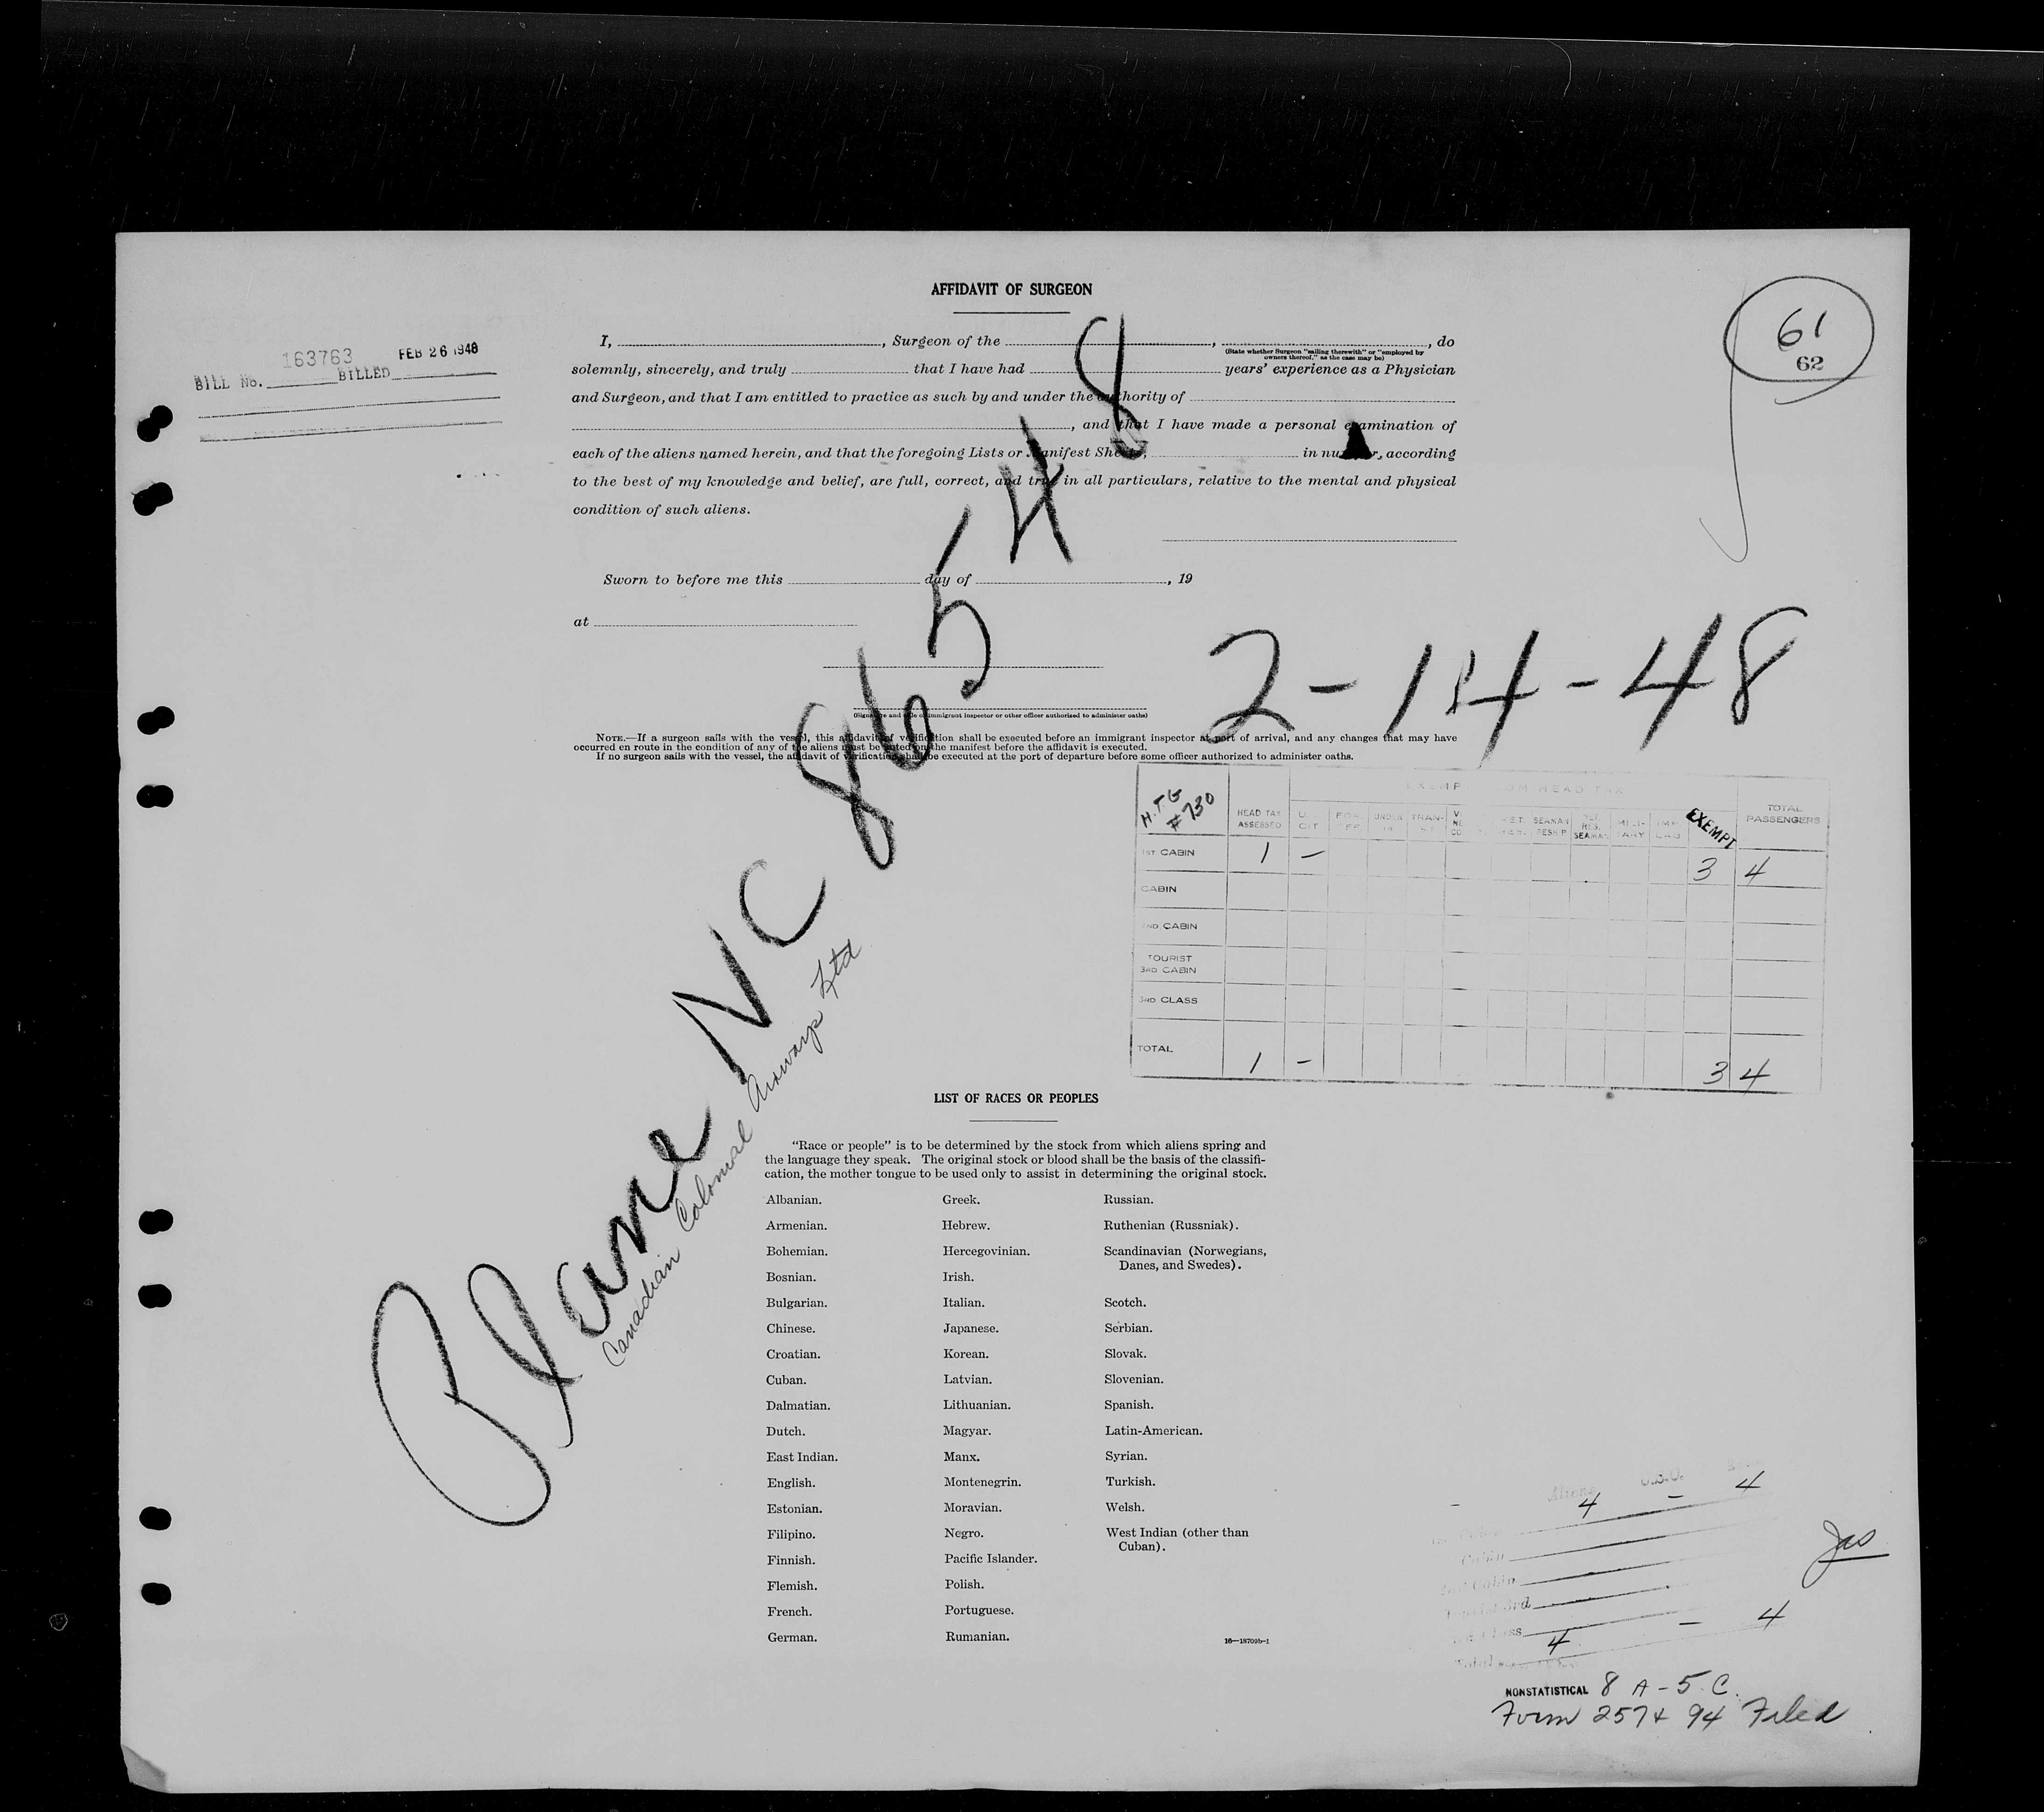 AFFIDAVIT OF SURGEON
61
62
163763 FEB 26 1948
BILL No. BILLED
I, , Surgeon of the , , do
(State whether Surgeon "sailing therewith" or "employed by
owners thereof," as the case may be)
solemnly, sincerely, and truly that I have had years' experience as a Physician
and Surgeon, and that I am entitled to practice as such by and under the authority of
, and that I have made a personal examination of
each of the aliens named herein, and that the foregoing Lists or Manifest Sheets, in number, according
to the best of my knowledge and belief, are full, correct, and true in all particulars, relative to the mental and physical
condition of such aliens.
Sworn to before me this day of , 19
at
(Signature and title of immigrant inspector or other officer authorized to administer oaths)
NOTE.—If a surgeon sails with the vessel, this affidavit of verification shall be executed before an immigrant inspector at port of arrival, and any changes that may have
occurred en route in the condition of any of the aliens must be noted on the manifest before the affidavit is executed.
If no surgeon sails with the vessel, the affidavit of verification shall be executed at the port of departure before some officer authorized to administer oaths.
Plane NC 86548
Canadian Colonial Airways Ltd
2-14-48
H.T.G
#730
EXEMPT FROM HEAD TAX
HEAD TAX ASSESSED U. CIT UNDER TRAN- SEAMAN DESH'P RES. SEAMAN MILI-TARY EXEMPT TOTAL PASSENGERS
1ST CABIN 1 – 3 4
CABIN
2ND CABIN
TOURIST
3RD CABIN
3RD CLASS
TOTAL 1 – 3 4
LIST OF RACES OR PEOPLES
"Race or people" is to be determined by the stock from which aliens spring and
the language they speak. The original stock or blood shall be the basis of the classifi-
cation, the mother tongue to be used only to assist in determining the original stock.
Albanian. Greek. Russian.
Armenian. Hebrew. Ruthenian (Russniak).
Bohemian. Hercegovinian. Scandinavian (Norwegians,
Danes, and Swedes).
Bosnian. Irish.
Bulgarian. Italian. Scotch.
Chinese. Japanese. Serbian.
Croatian. Korean. Slovak.
Cuban. Latvian. Slovenian.
Dalmatian. Lithuanian. Spanish.
Dutch. Magyar. Latin-American.
East Indian. Manx. Syrian.
English. Montenegrin. Turkish.
Estonian. Moravian. Welsh.
Filipino. Negro. West Indian (other than
Cuban).
Finnish. Pacific Islander.
Flemish. Polish.
French. Portuguese.
German. Rumanian.
16—18709b-1
Aliens
4 – 4
Cabin
4 – 4
Total
Jas
NONSTATISTICAL 8 A-5 C.
Form 257 & 94 Filed